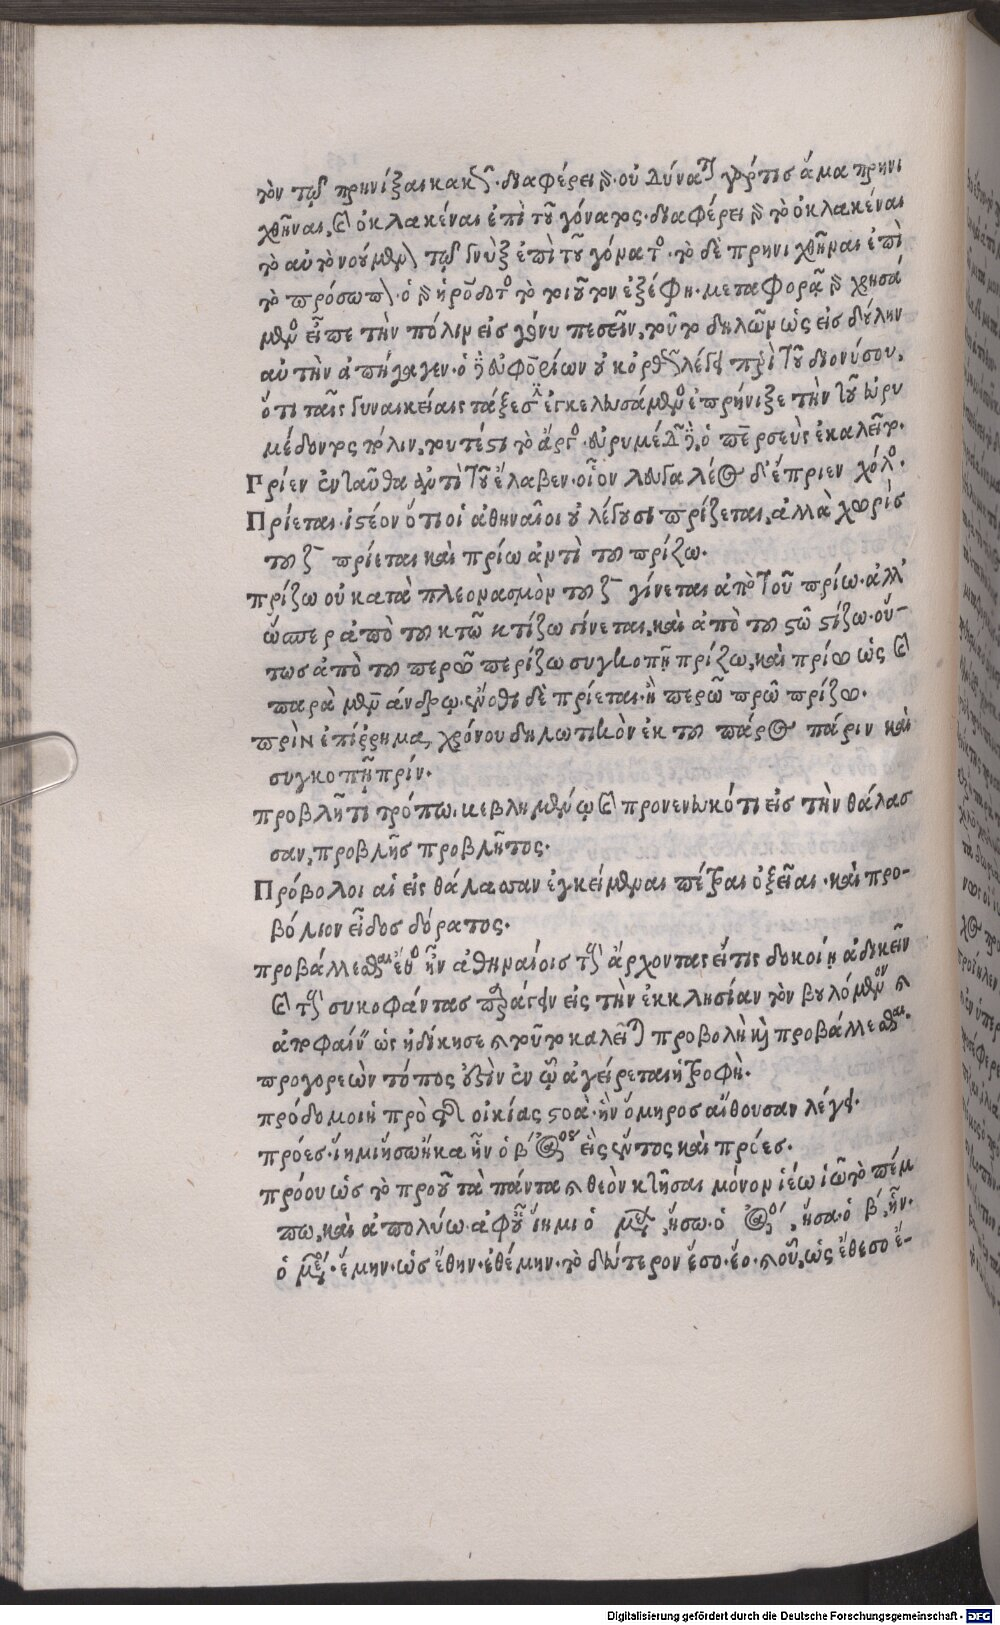 τὸν τῷ πρηνίξαι κακῶς. διαφέρει δὲ. οὐ δύναται γάρ τις ἅμα πρηνι
χθῆναι, καὶ ὀκλακέναι ἐπὶ τοῦ γόνατος. διαφέρει δὲ τὸ ὀκλακέναι
τὸ αὐτὸ νοούμενον τῷ γνὺξ ἐπὶ τοῦ γόνατος. τὸ δὲ πρηνιχθῆναι ἐπὶ
τὸ πρόσωπον. ὁ δὲ ἡρόδοτος τὸ τοιοῦτον ἐξέφη. μεταφορᾷ δὲ χρησά
μενος εἶπε τὴν πόλιν εἰς γόνυ πεσεῖν, τοῦτο δηλῶν ὡς εἰς δύλην
αὐτὴν ἀπήγαγεν. ὁ δὲ εὐφορίων οὐκ ὀρθῶς λέγει περὶ τοῦ διονύσου,
ὅτι ταῖς γυναικείαις τάξεσιν ἐγκελευσάμενος ἐπρήνιξε τὴν τοῦ εὐρυ
μέδοντος πόλιν, τουτέστι τὸ ἄργος. εὐρυμέδων δὲ, ὁ περσεὺς ἐκαλεῖτο.
Πρίεν ἐνταῦθα ἀντὶ τοῦ ἔλαβεν. οἷον λευγαλέος δ' ἔπριεν χόλος.
Πρίεται. ἰστέον ὅτι οἱ ἀθηναῖοι οὐ λέγουσι πρίζεται, ἀλλὰ χωρὶς
του ζ πρίεται καὶ πρίω ἀντὶ του πρίζω.
πρίζω οὐ κατὰ πλεονασμὸν του ζ γίνεται ἀπὸ τοῦ πρίω. ἀλλ'
ὥσπερ ἀπὸ του κτῶ κτίζω γίνεται, καὶ ἀπὸ του στῶ στίζω. οὕ-
τως ἀπὸ του περῶ περίζω συγκοπῇ πρίζω, καὶ πρίω ὡς καὶ
παρὰ μενάνδρῳ. ἔνθεν δὲ πρίεται. ἢ περῶ πρῶ πρίζω.
πρὶν ἐπίρρημα, χρόνου δηλωτικὸν ἐκ του πάρος πάριν καὶ
συγκοπῇ πρίν.
προβλῆτι τρόπῳ. κεβλημένῳ καὶ προνενευκότι εἰς τὴν θάλασ
σαν, προβλῆς προβλῆτος.
Πρόβολοι αἱ εἰς θάλασσαν ἐγκείμεναι πέτραι ὀξεῖαι. καὶ προ-
βόλιον εἶδος δόρατος.
προβάλλεσθαι ἔθος ἦν ἀθηναίοις τοὺς ἄρχοντας εἴτις δοκοίη ἀδικεῖν
καὶ τοὺς συκοφάντας πράγειν εἰς τὴν ἐκκλησίαν τὸν βουλόμενον καὶ
ἀποφαίνειν ὡς ἠδίκησε καὶ τοῦτο καλεῖται προβολὴ καὶ προβάλλεσθαι.
προγορεὼν τόπος οὐσὶν ἐν ᾧ ἀγείρεται ἡ τροφὴ.
πρόδομοι ἡ πρὸ τῆς οἰκίας στοὰ. ἣν ὅμηρος αἴθουσαν λέγει.
πρόες. ἵημι ἥσω ἧκα ἧν ὁ β´ ἀόριστος εἷς ἕντος καὶ πρίες.
πρόου ὡς τὸ προῦ τὰ πάντα καὶ θεὸν κτῆσαι μόνον ἰέω ἰῶ τὸ πέμ
πω, καὶ ἀπολύω. ἀφ' οὗ ἵημι ὁ μέλλων, ἥσω. ὁ ἀόριστος, ἧσα. ὁ β´, ἧν.
ὁ μέσος. ἕμην. ὡς ἔθην. ἐθέμην. τὸ δεύτερον ἕσο. ἕο. καὶ οὗ, ὡς ἔθεσο ἔ-
Digitalisierung gefördert durch die Deutsche Forschungsgemeinschaft - DFG